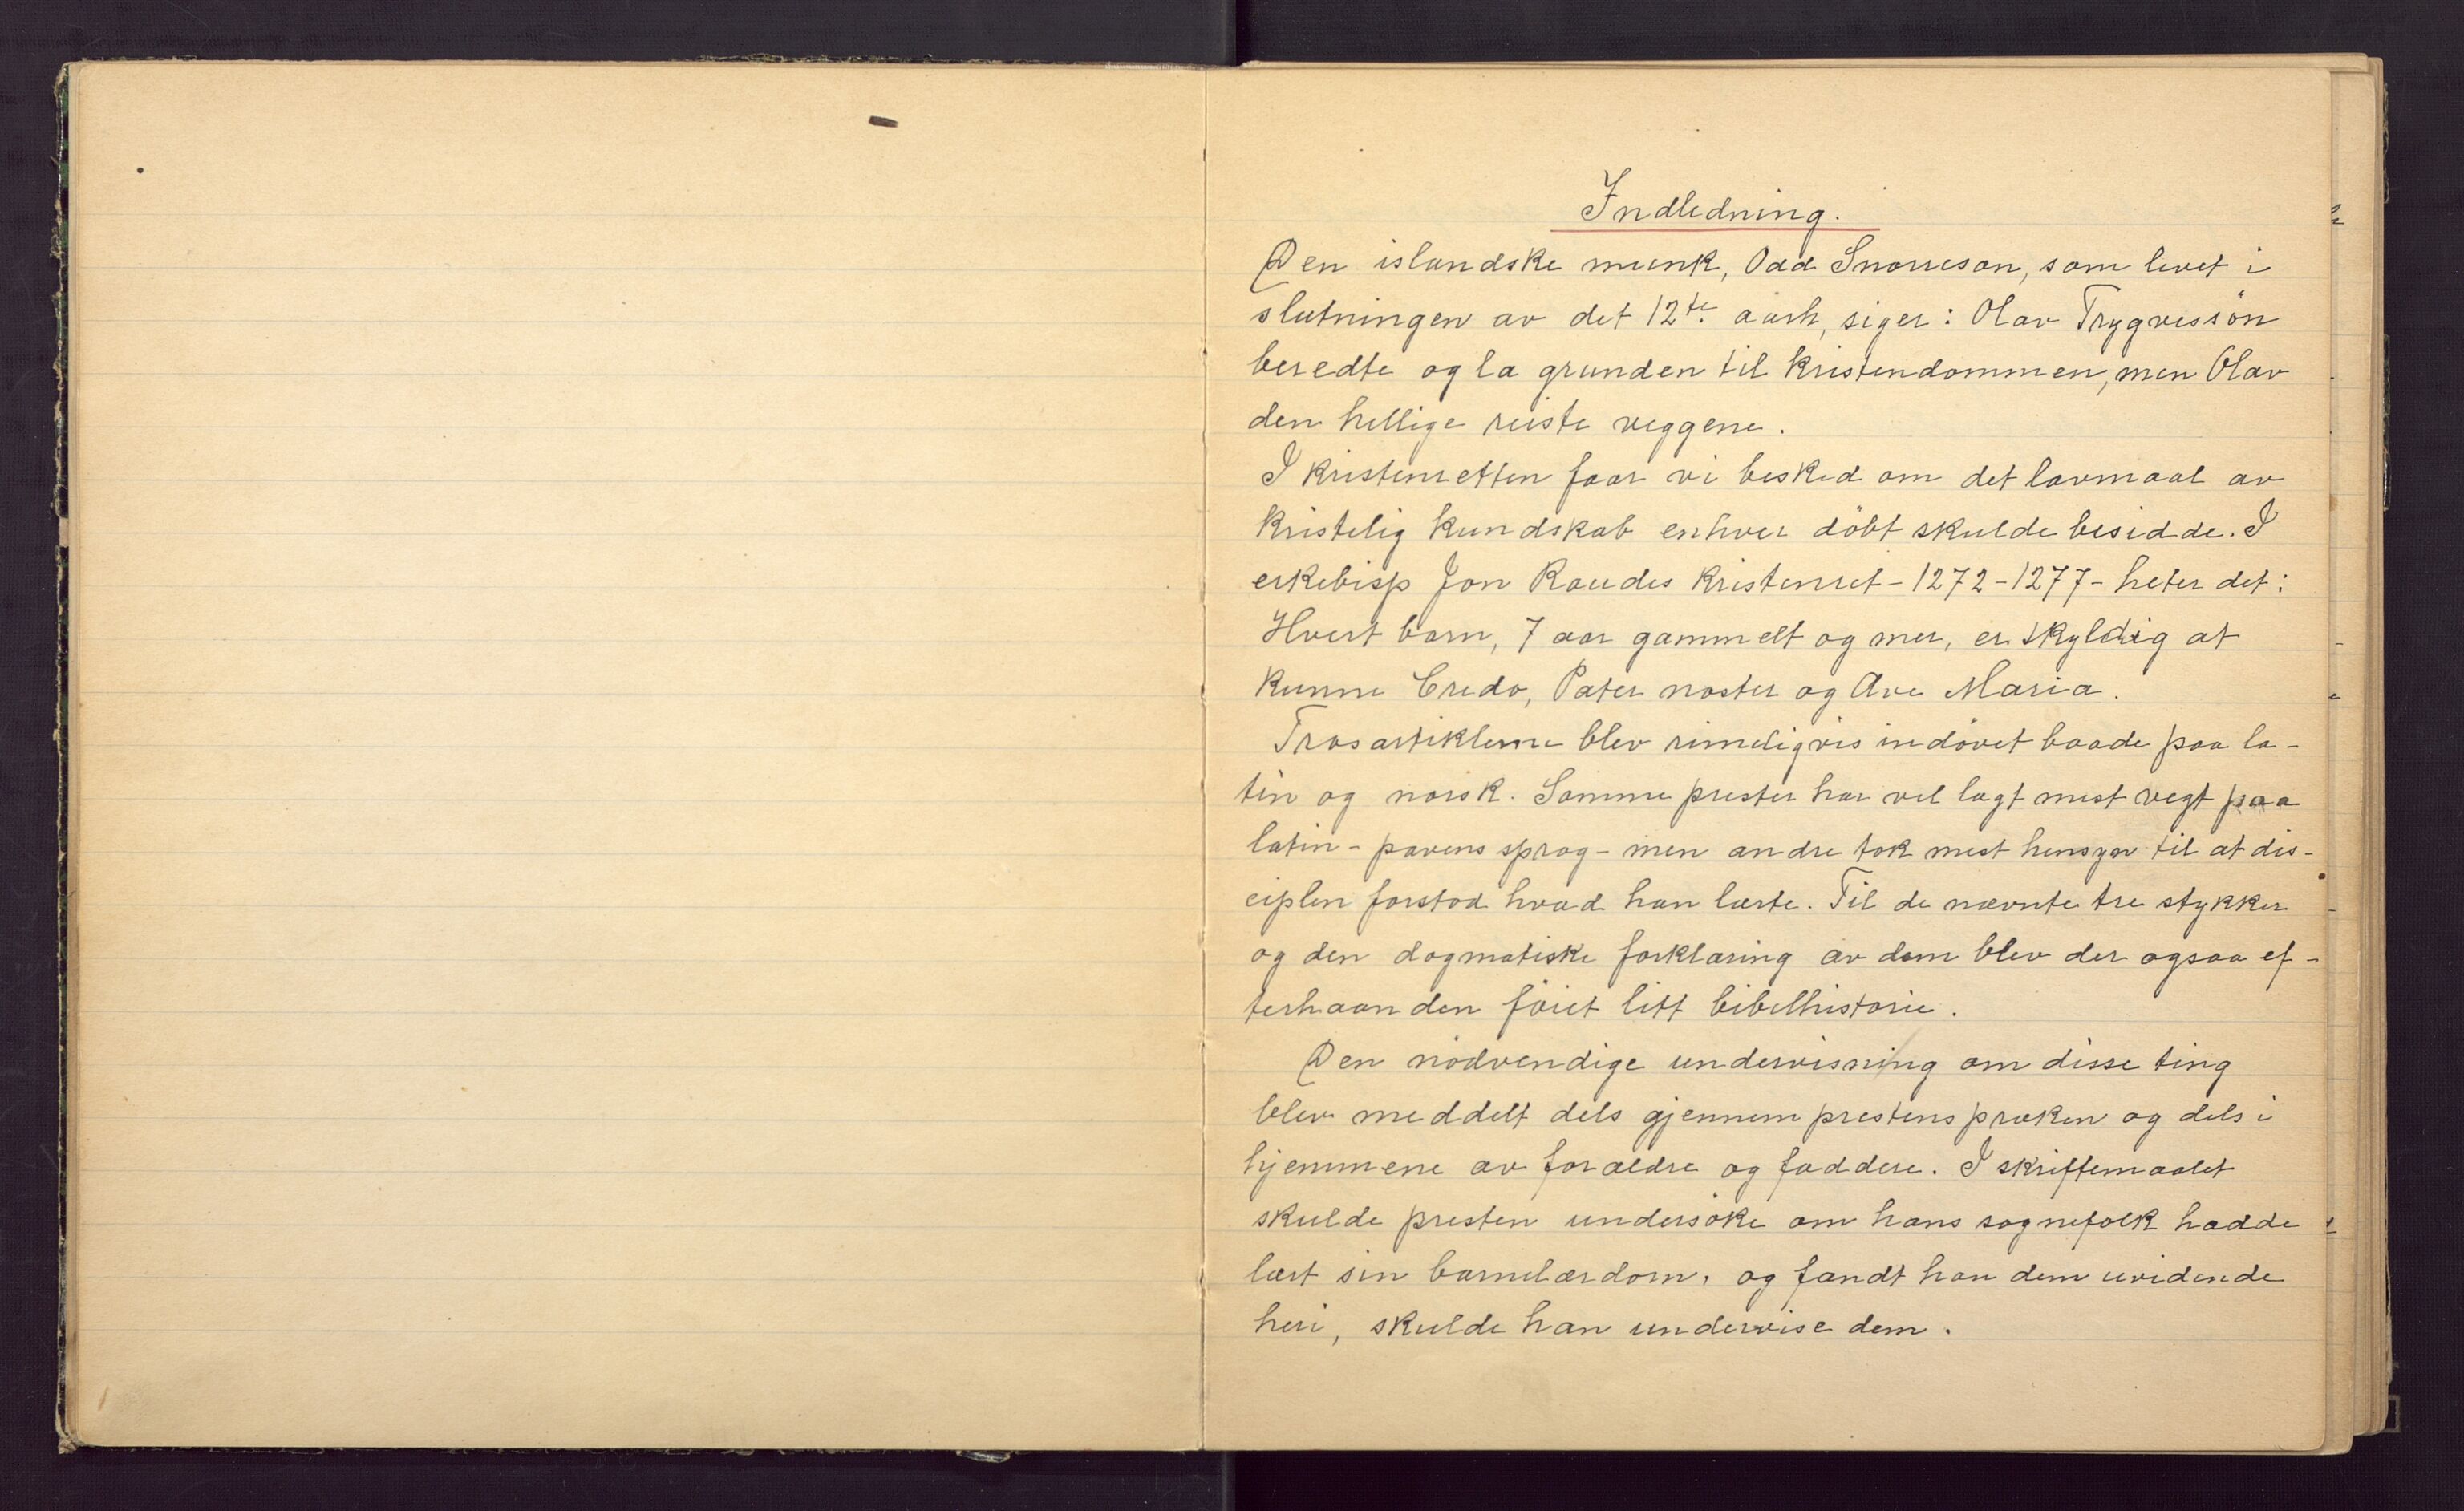 Indledning.
Den islandske munk, Odd Snorreson, som levet i
slutningen av det 12te. aarh, siger: Olav Trygvessön
beredte og la grunden til kristendommen, men Olav
den hellige reiste veggene.
I kristenretten faar vi besked om det lavmaal av
kristelig kundskab enhver döbt skulde besidde. I
erkebisp Jon Raudes kristenret - 1272-1277 - heter det:
Hvert barn, 7 aar gammelt og mer, er skyldig at
kunne Credo, Pater noster og Ave Maria.
Trosartiklerne blev rimeligvis indövet baade paa la-
tin og norsk. Somme prester har vel lagt mest vegt paa
latin - pavens sprog - men andre tok mest hensyn til at dis-
ciplen forstod hvad han lærte. Til de nævnte tre stykker
og den dogmatiske forklaring av dem blev der ogsaa ef-
terhaanden föiet litt bibelhistorie.
Den nödvendige undervisning om disse ting
blev meddelt dels gjennem prestens præken og dels i
hjemmene av forældre og faddere. I skriftemaalet
skulde presten undersöke om hans sognefolk hadde
lært sin barnelærdom, og fandt han dem uvidende
heri, skulde han undervise dem.